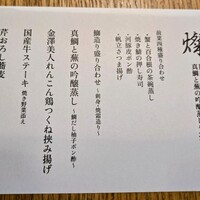 燦
真鯛と蕪の吟
前菜四種盛り合わせ
・蟹と百合根の茶碗蒸し
・焼き鯖の押し寿司
・河豚皮ポン酢
・帆立さつま揚げ
鰤造り盛り合わせ ～刺身・焼霜造り～
真鯛と蕪の吟醸蒸し ～鯛だし柚子ポン酢～
金澤美人れんこん鶏つくね挟み揚げ
国産牛ステーキ 焼き野菜添え
芹おろし蕎麦